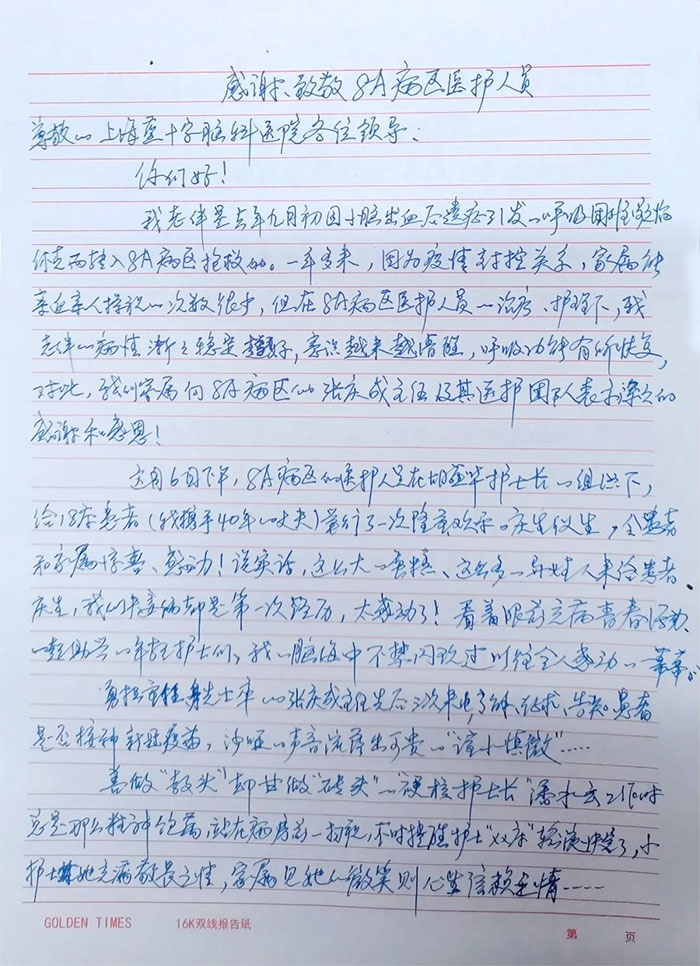 感谢、致敬 8A病区医护人员
尊敬的上海蓝十字脑科医院各位领导:
你们好!
我老伴是去年九月初因小脑出血后遗症引发的呼吸困难
而转入8A病区抢救的。一年多来,因为疫情封控关系,家属能
亲近亲人探视的次数很少,但在8A病区医护人员的治疗、护理下,我
老伴的病情渐渐稳定趋好,意识越来越清醒,呼吸功能有所恢复,
对此,我们家属向8A病区的张庆成主任及其医护团队表示深深的
感谢和感恩!
这月6日下午,8A病区的医护人员在胡 护士长的组织下,
给18床患者(我携手40年的丈夫)举行了一次隆重欢乐的庆生仪式,令患者
和家属惊喜、感动!说实话,这么大的蛋糕、这么多的异姓人来给患者
庆生,我们夫妻俩却是第一次经历,太感动了!看着眼前充满青春活力
的年轻护士们,我的脑海中不禁闪现过以往令人感动的一幕幕:
勇担重任身先士卒的张庆成主任先后三次来电,了解、征求、告知患者
是否接种新冠疫苗,沙哑的声音流露出可贵的"谨小慎微"……
善做"教头"却甘做"砖头"的硬核护士长"潘 "
总是那么精神饱满,站在病房前一扫视,不时提醒护士"XX床"轻 了,小
护士对她充满敬畏之情,家属见她的微笑则心生信赖之情……
GOLDEN TIMES 16K双线报告纸 第 页